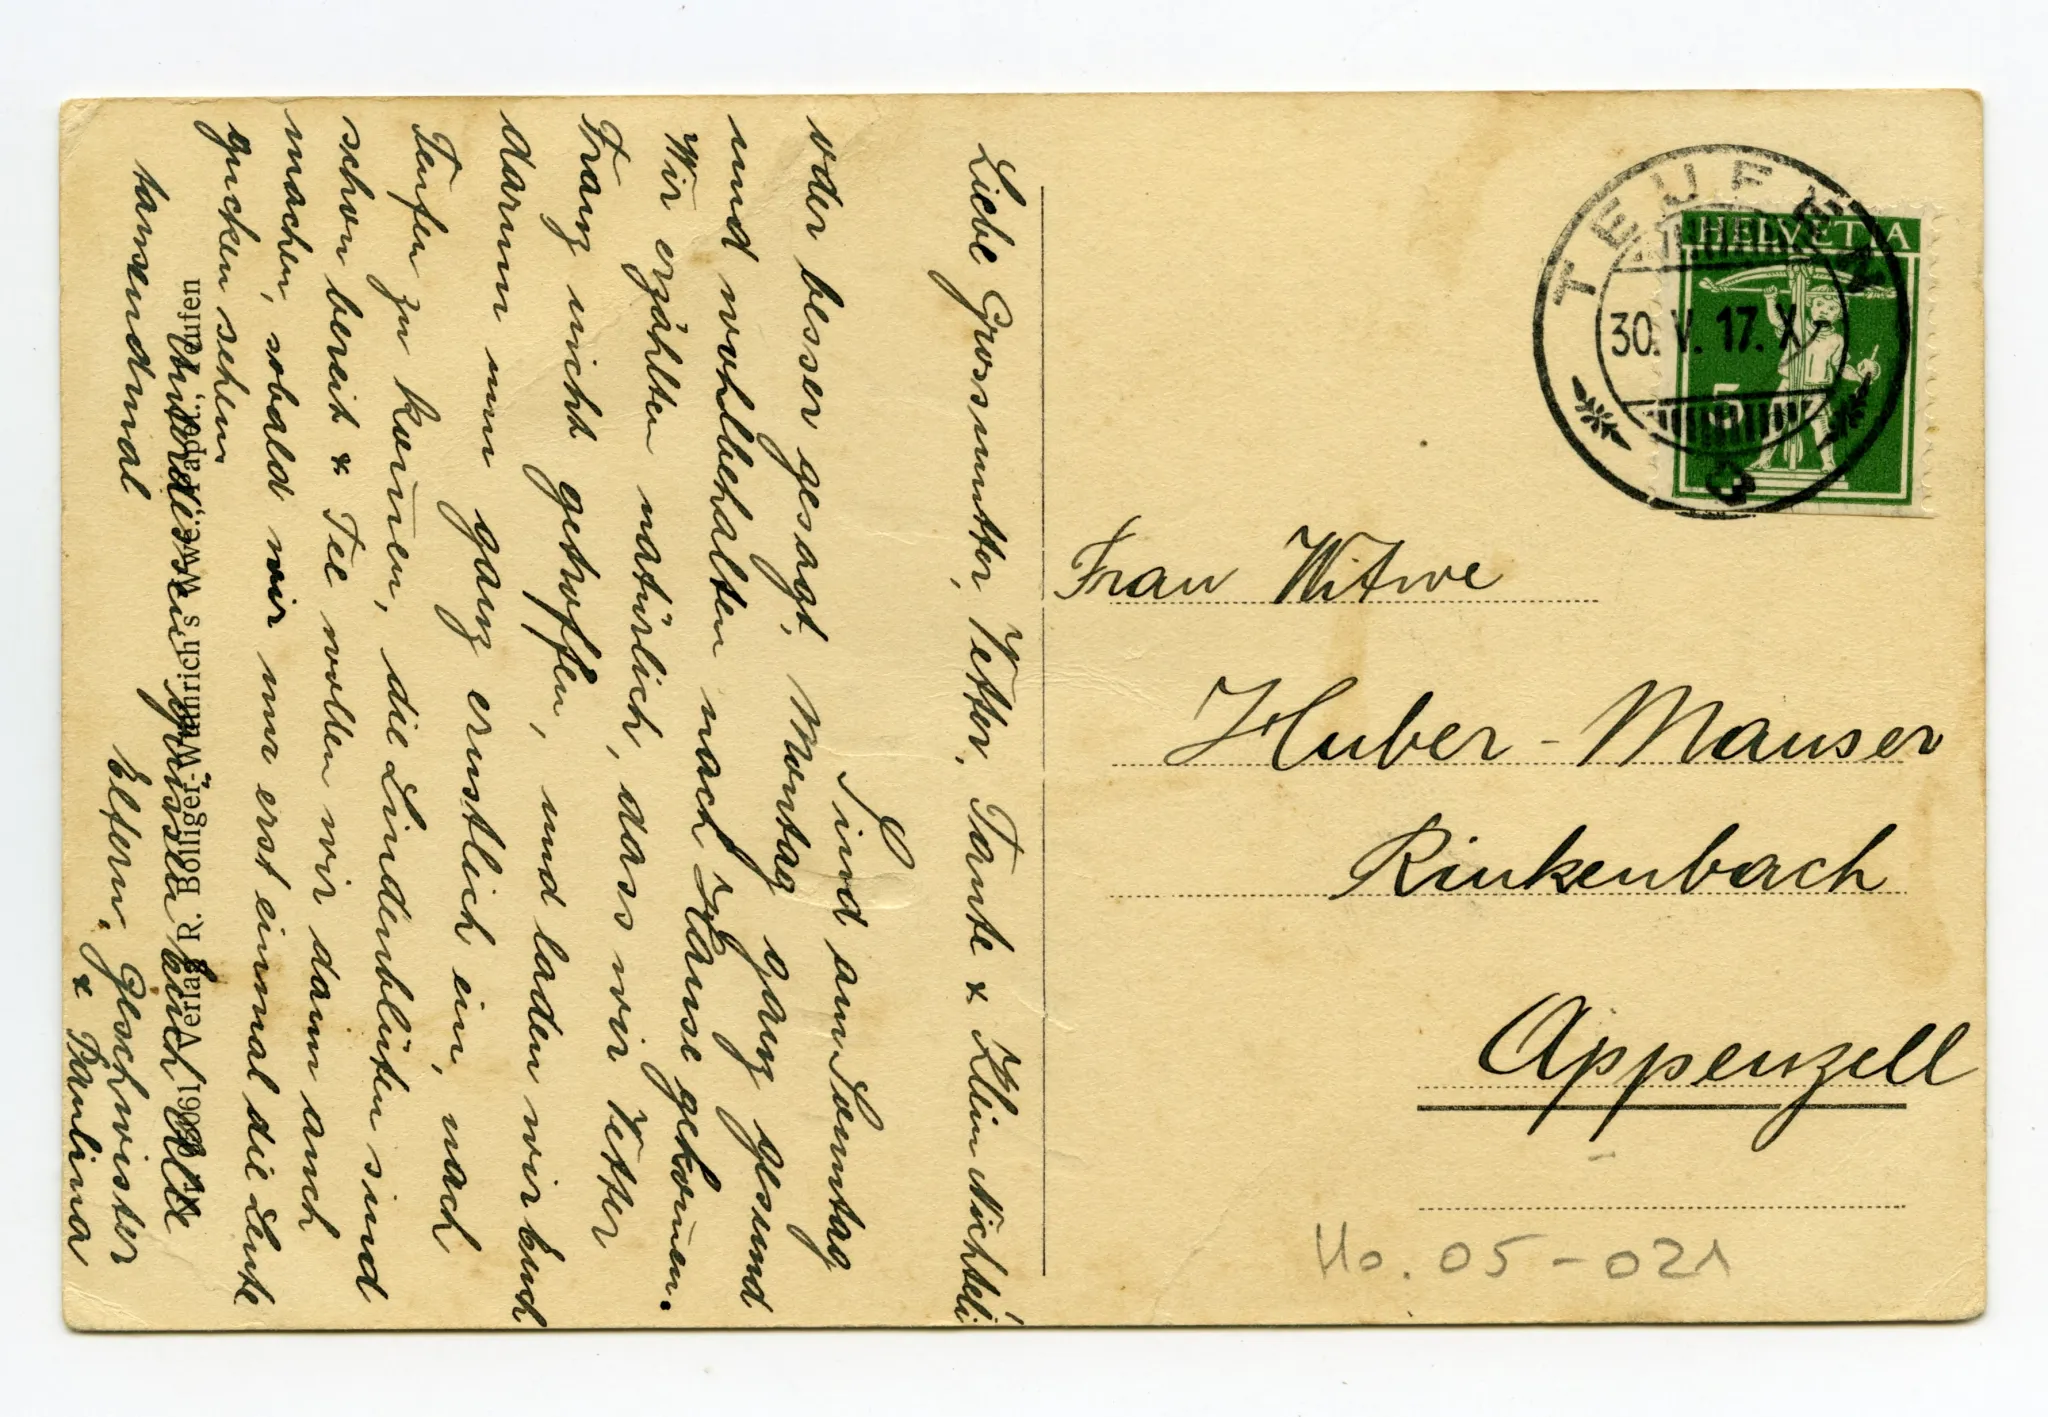 Liebe Grossmutter, Vetter, Tante & Klein Nichteli!
Sind am Sonntag
oder besser gesagt, Montag ganz gesund
und wohlbehalten nach Hause gekom̄en.
Wir erzählten natürlich, dass wir Vetter
Franz nicht getroffen, und laden wir Euch
darum nun ganz ernstlich ein, nach
Teufen zu kom̄en, die Lindenblüten sind
schon bereit & Tee wollen wir dann auch
machen, sobald wir nur erst einmal die Leute
gucken sehen.
Unterdissen grüssen Euch Alle
tausendmal
Eltern, Geschwister
& Paulina
1961 Verlag R. Bolliger-Wünrich's Wwe., Papet., Teufen
TEUFEN
30. V. 17. X
3
HELVETIA
5
Frau Witwe
Huber-Mauser
Rinkenbach
Appenzell
Ho. 05-021